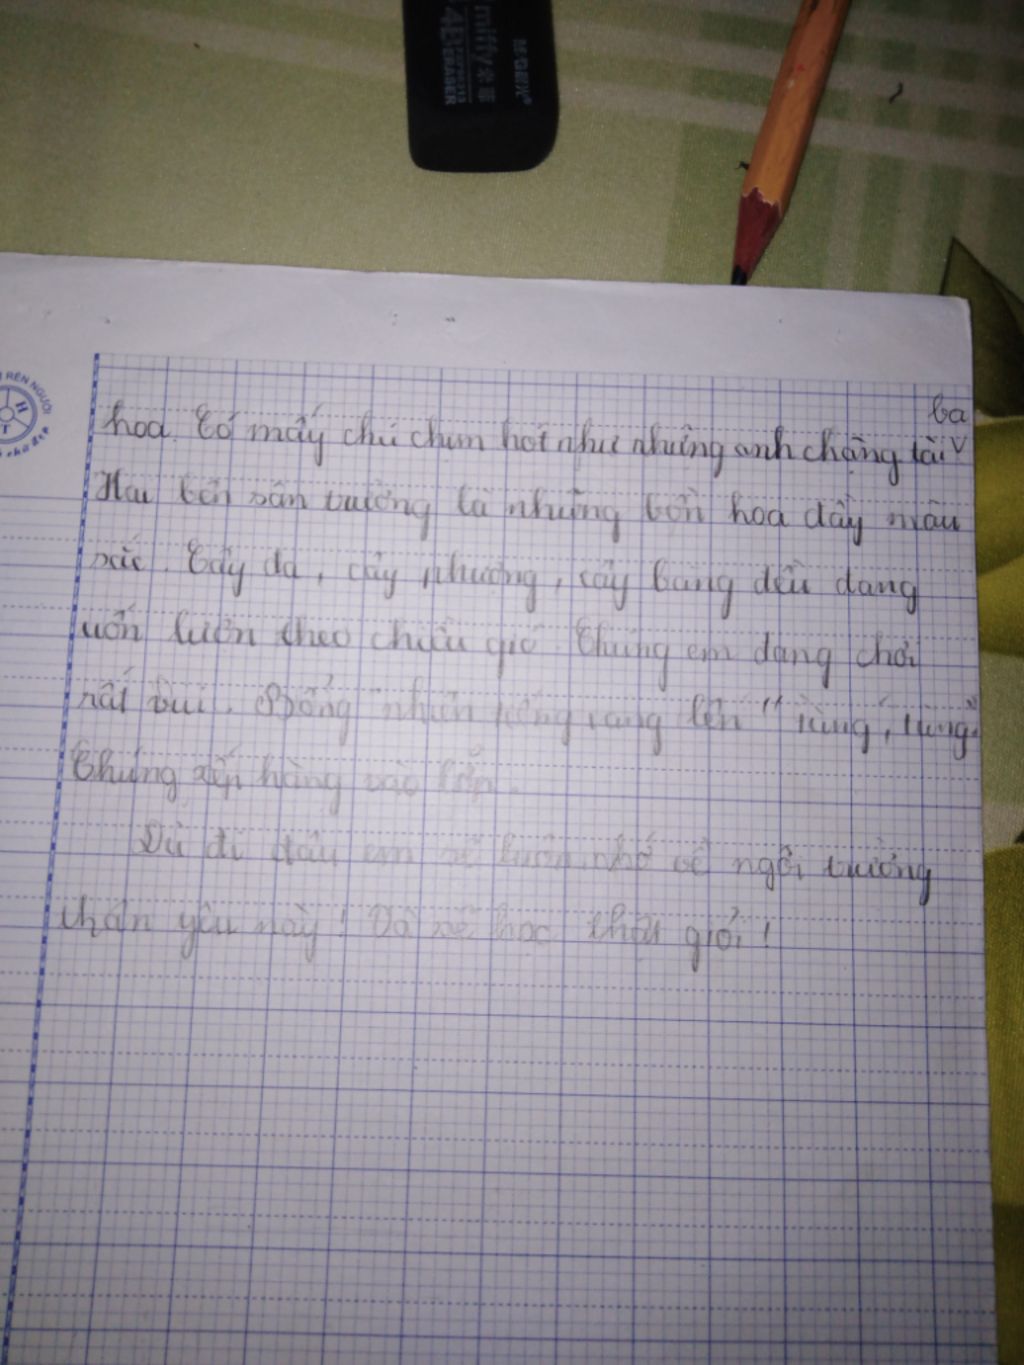 miffy
4E ERASER
M&G
RÈN NGƯỜI
H
T
chữ đẹp
ba
hoa. Có mấy chú chim hót như những anh chàng tài v
Hai bên sân trường là những bồn hoa đầy màu
sắc. Cây đa, cây phượng, cây bàng đều đang
uốn lượn theo chiều gió. Chúng em đang chơi
rất vui. Bỗng nhiên trống vang lên " tùng, tùng"
Chúng xếp hàng vào lớp.
Dù đi đâu em sẽ luôn nhớ về ngôi trường
thân yêu này! Và sẽ học thật giỏi!